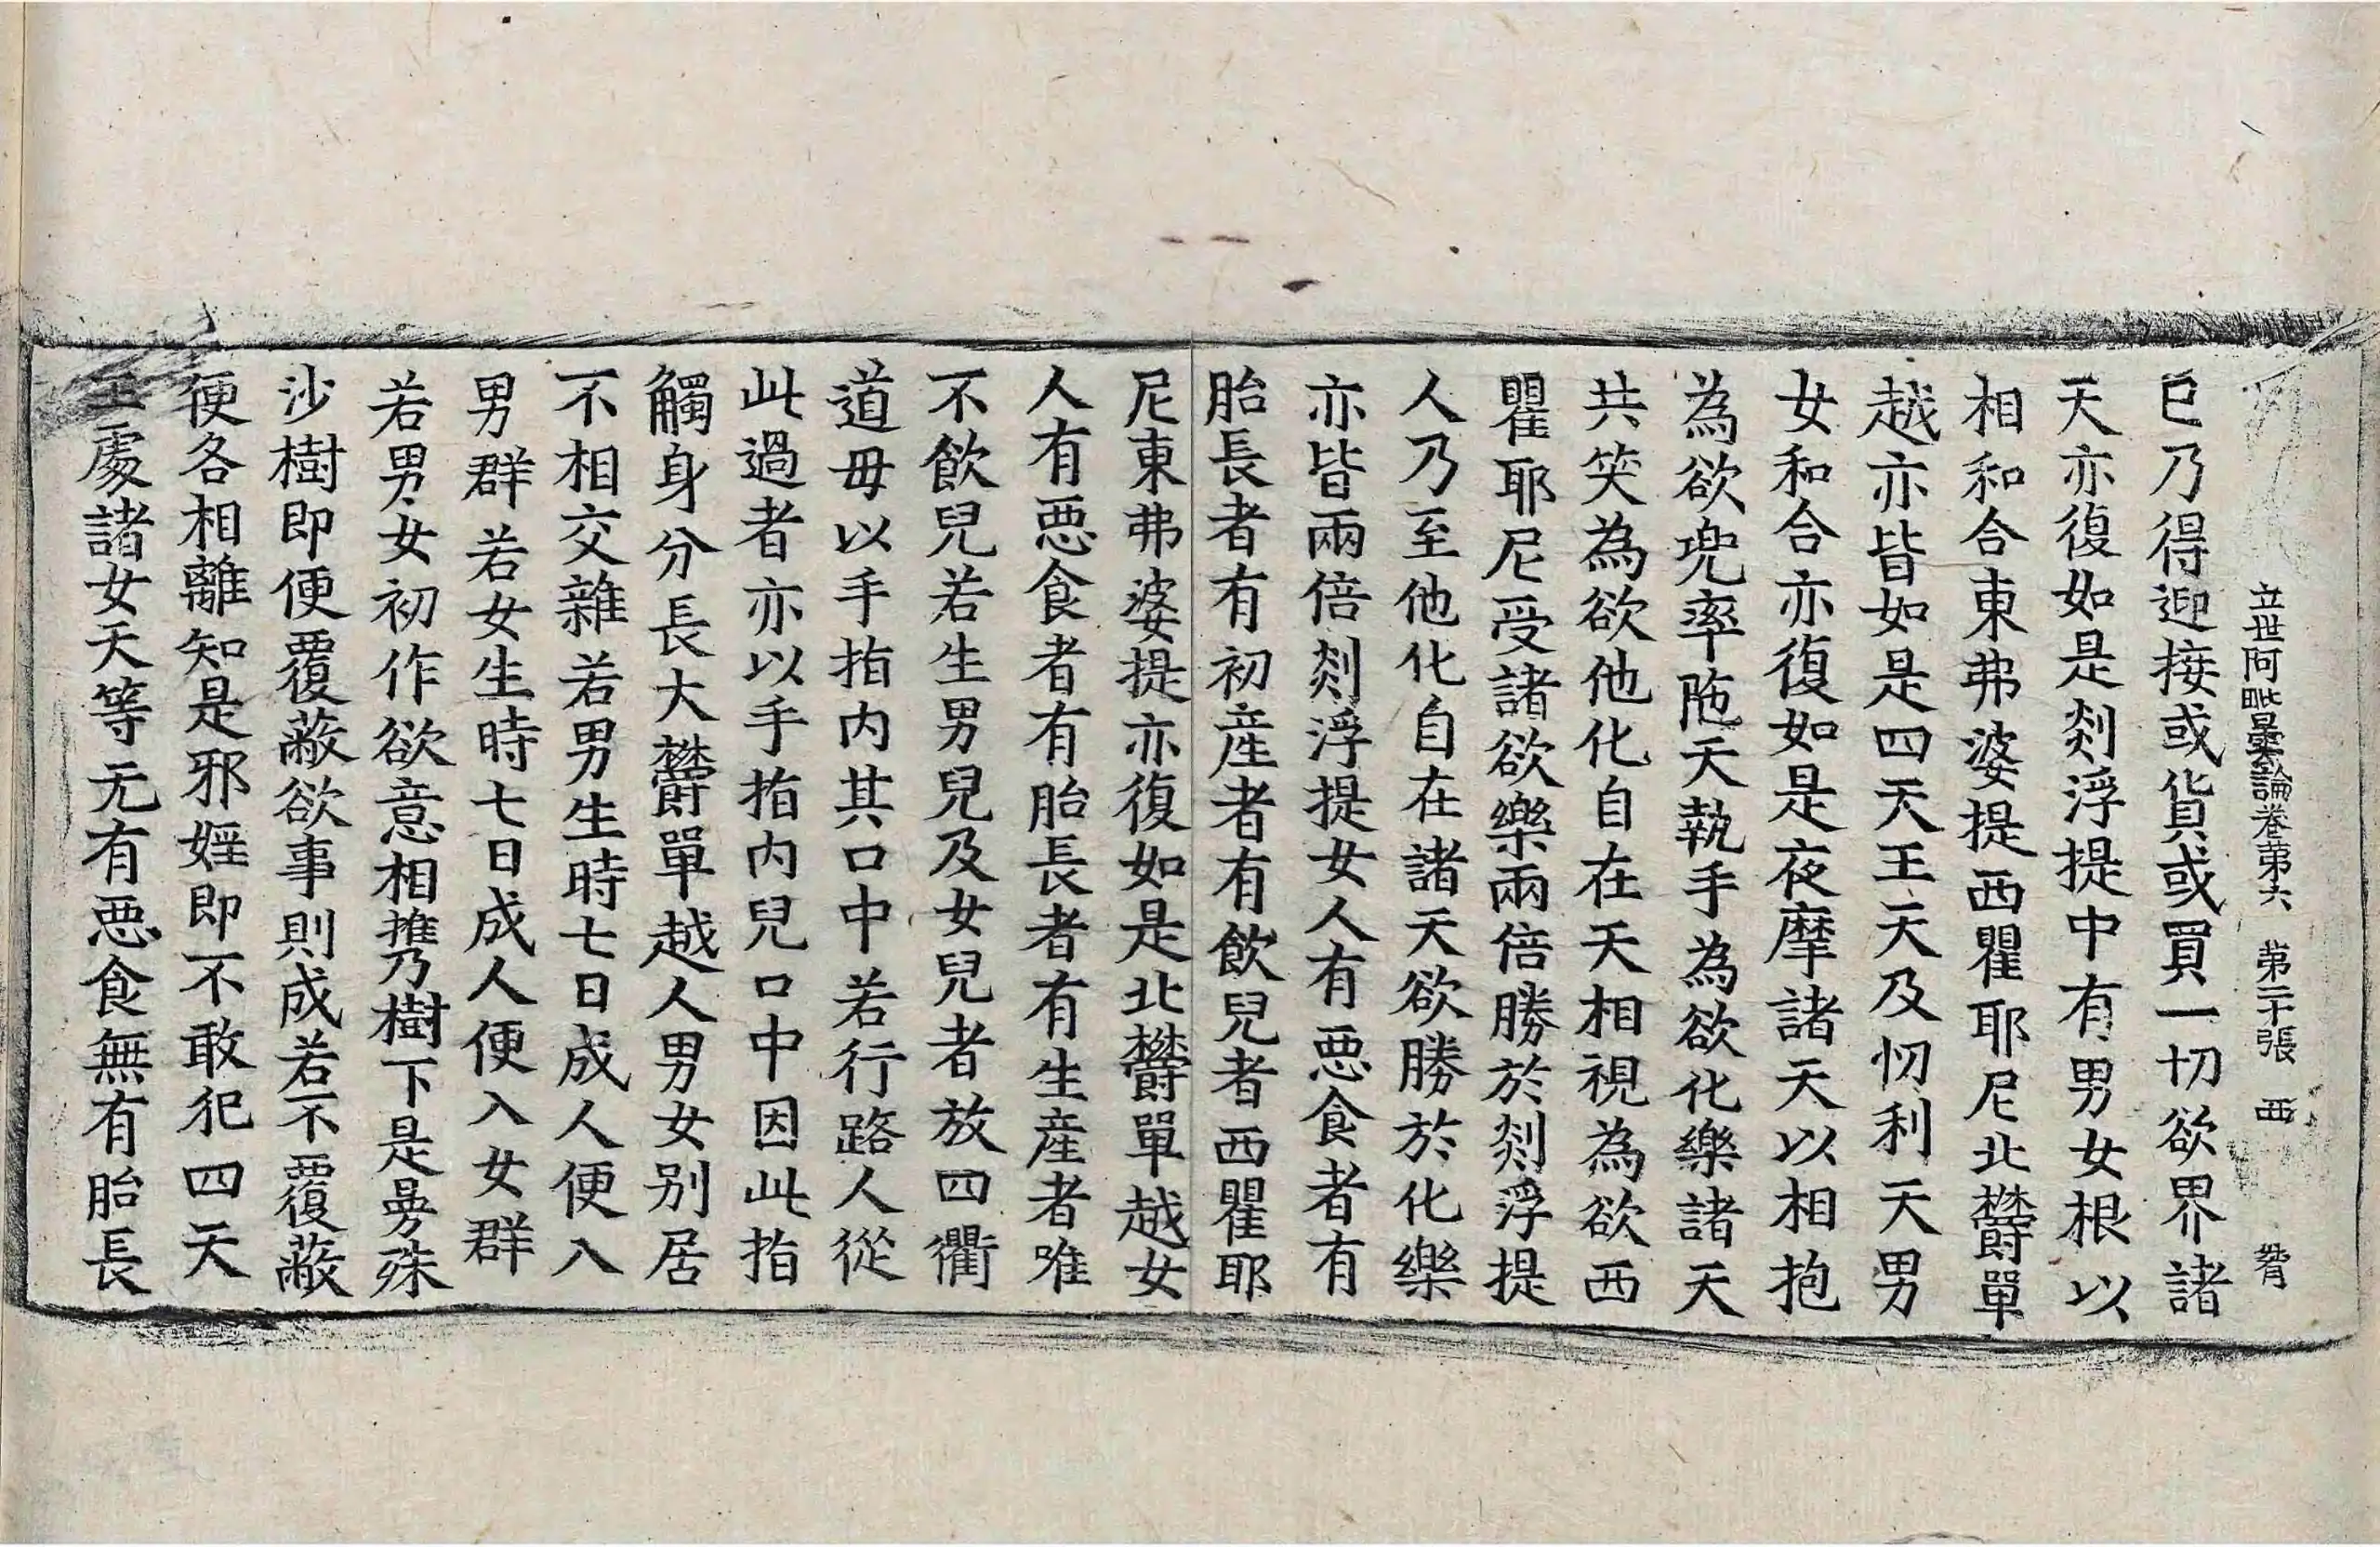 立世阿毗曇論卷第六　第二十張　西
已乃得迎接或貨或買一切欲界諸
天亦復如是剡浮提中有男女根以
相和合東弗婆提西瞿耶尼北欝單
越亦皆如是四天王天及忉利天男
女和合亦復如是夜摩諸天以相抱
為欲兜率陁天執手為欲化樂諸天
共笑為欲他化自在天相視為欲西
瞿耶尼受諸欲樂兩倍勝於剡浮提
人乃至他化自在諸天欲勝於化樂
亦皆兩倍剡浮提女人有惡食者有
胎長者有初產者有飲兒者西瞿耶
尼東弗婆提亦復如是北欝單越女
人有惡食者有胎長者有生產者唯
不飲兒若生男兒及女兒者放四衢
道毋以手指内其口中若行路人從
此過者亦以手指内兒口中因此指
觸身分長大欝單越人男女別居
不相交雜若男生時七日成人便入
男群若女生時七日成人便入女群
若男女初作欲意相携乃樹下是曼殊
沙樹即便覆蔽欲事則成若不覆蔽
便各相離知是邪婬即不敢犯四天
王處諸女天等无有惡食無有胎長